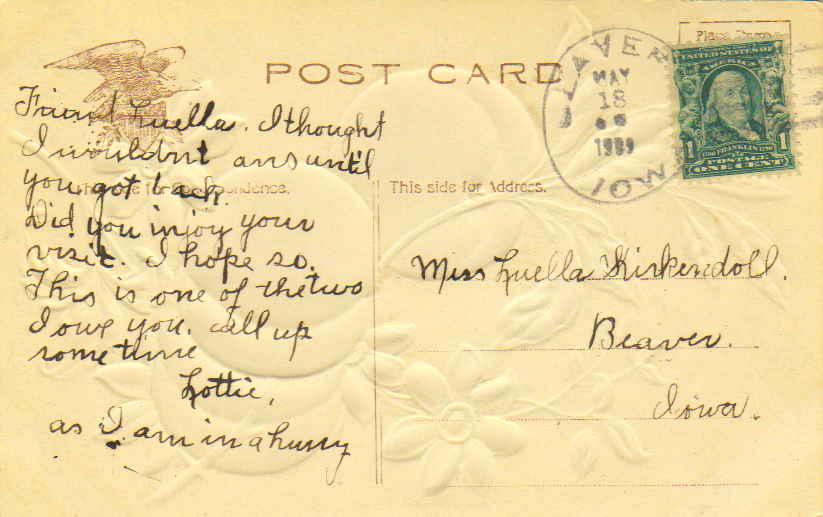 POST CARD
Place Stamp
BEAVER
MAY
18
1909
IOWA
UNITED STATES OF
AMERICA
1706 FRANKLIN 1790
1 POSTAGE 1
ONE CENT
Friend Luella. I thought
I wouldnt ans until
you got back.
Did you injoy your
visit. I hope so.
This is one of the two
I owe you. call up
some time
Lottie,
as I am in a hurry
This side for Correspondence.
This side for Address.
Miss Luella Kirkendoll.
Beaver.
Iowa.